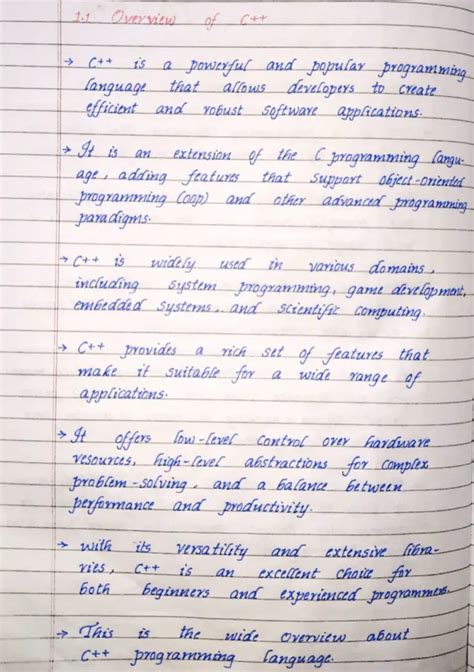 1.1 Overview of C++
→ C++ is a powerful and popular programming
language that allows developers to create
efficient and robust software applications.
→ It is an extension of the C programming langu-
age, adding features that support object-oriented
programming (OOP) and other advanced programming
paradigms.
→ C++ is widely used in various domains,
including system programming, game development,
embedded systems, and scientific computing.
→ C++ provides a rich set of features that
make it suitable for a wide range of
applications.
→ It offers low-level control over hardware
resources, high-level abstractions for complex
problem-solving, and a balance between
performance and productivity.
→ with its versatility and extensive libra-
ries, C++ is an excellent choice for
both beginners and experienced programmers.
→ This is the wide overview about
C++ programming language.